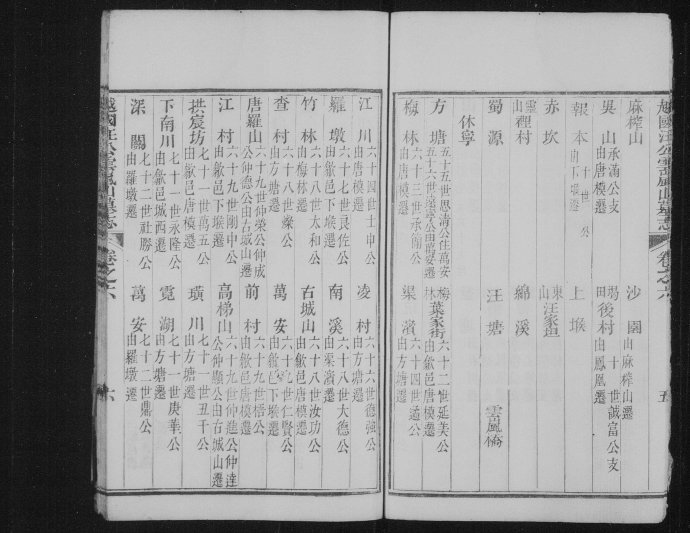 越國汪公雲嵐山墓志 卷之六 五
麻榨山 沙園 由麻榨山遷
吳山 承滿公支 由唐模遷 後村 十世誠富公支 由鳳凰遷
報本 十世公 上塘
赤坎 東山汪家亶
靈山裡村 綿溪
蜀源 汪塘 雲嵐橋
休寧
方塘 五十五世思清公住萬安
梅林葉家街 六十二世延美公 由歙邑唐模遷
梅林 六十三世承南公 由唐模遷 渠濱 六十四世道公 由方塘遷
江川 六十四世士申公 由唐模遷 凌村 六十六世德強公 由方塘遷
羅墩 六十七世良佐公 由歙邑下塘遷 南溪 六十八世大德公 由渠濱遷
竹林 六十八世太和公 由梅林遷 古城山 六十八世汝功公 由歙邑唐模遷
查村 六十八世燦公 由方塘遷 萬安 六十九世仁賢公 由歙邑下塘遷
唐羅山 六十九世仲榮公仲成公仲德公由古城山遷 前村 六十九世梧公 由歙邑唐模遷
江村 六十九世剛中公 由歙邑下塘遷 高梯山 六十九世仲進公仲達公仲顯公由古城山遷
拱宸坊 七十一世萬五公 由歙邑唐模遷 璜川 七十一世丑千公 由方塘遷
下南川 七十一世永隆公 由歙邑城西遷 霓湖 七十一世庚華公 由方塘遷
深關 七十二世社勝公 由羅墩遷 萬安 七十二世鼎公 由羅墩遷
越國汪公雲嵐山墓志 卷之六 六